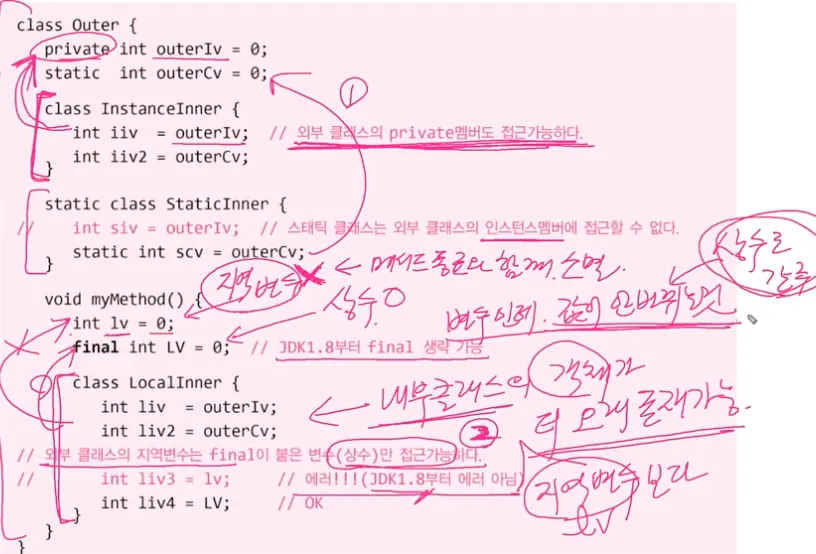 class Outer {
private int outerIv = 0;
static int outerCv = 0;
①
class InstanceInner {
int iiv = outerIv; // 외부 클래스의 private멤버도 접근가능하다.
int iiv2 = outerCv;
}
static class StaticInner {
// int siv = outerIv; // 스태틱 클래스는 외부 클래스의 인스턴스멤버에 접근할 수 없다.
static int scv = outerCv;
}
지역변수 X ← 메서드 종료와 함께 소멸.
상수로 간주
void myMethod() {
상수 O
변수인데. 값이 안바뀌는것
int lv = 0;
final int LV = 0; // JDK1.8부터 final 생략 가능
class LocalInner {
int liv = outerIv;
int liv2 = outerCv;
← 내부클래스의 객체가
더 오래 존재가능.
②
지역변수보다
lv
// 외부 클래스의 지역변수는 final이 붙은 변수(상수)만 접근가능하다.
// int liv3 = lv; // 에러!!!(JDK1.8부터 에러 아님)
int liv4 = LV; // OK
}
}
}